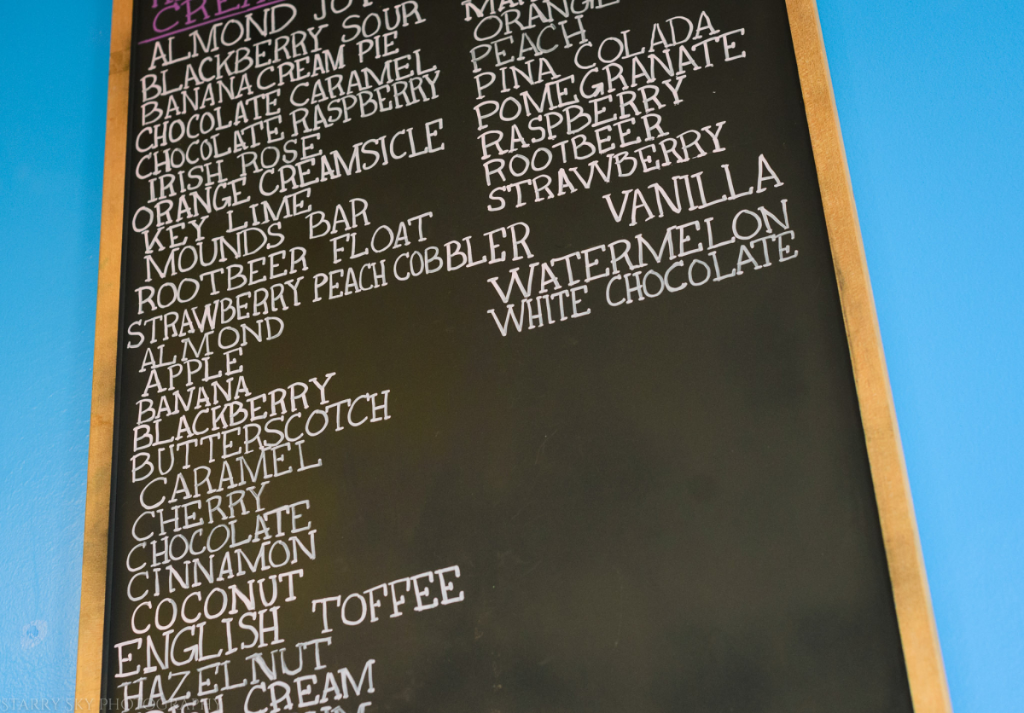 CREA
ALMOND JOY
BLACKBERRY SOUR
BANANA CREAM PIE
CHOCOLATE CARAMEL
CHOCOLATE RASPBERRY
IRISH ROSE
ORANGE CREAMSICLE
KEY LIME
MOUNDS BAR
ROOTBEER FLOAT
STRAWBERRY PEACH COBBLER
ALMOND
APPLE
BANANA
BLACKBERRY
BUTTERSCOTCH
CARAMEL
CHERRY
CHOCOLATE
CINNAMON
COCONUT
ENGLISH TOFFEE
HAZELNUT
CREAM
ORANGE
PEACH
PINA COLADA
POMEGRANATE
RASPBERRY
ROOTBEER
STRAWBERRY
VANILLA
WATERMELON
WHITE CHOCOLATE
STARRY SKY PHOTOGRAPHY